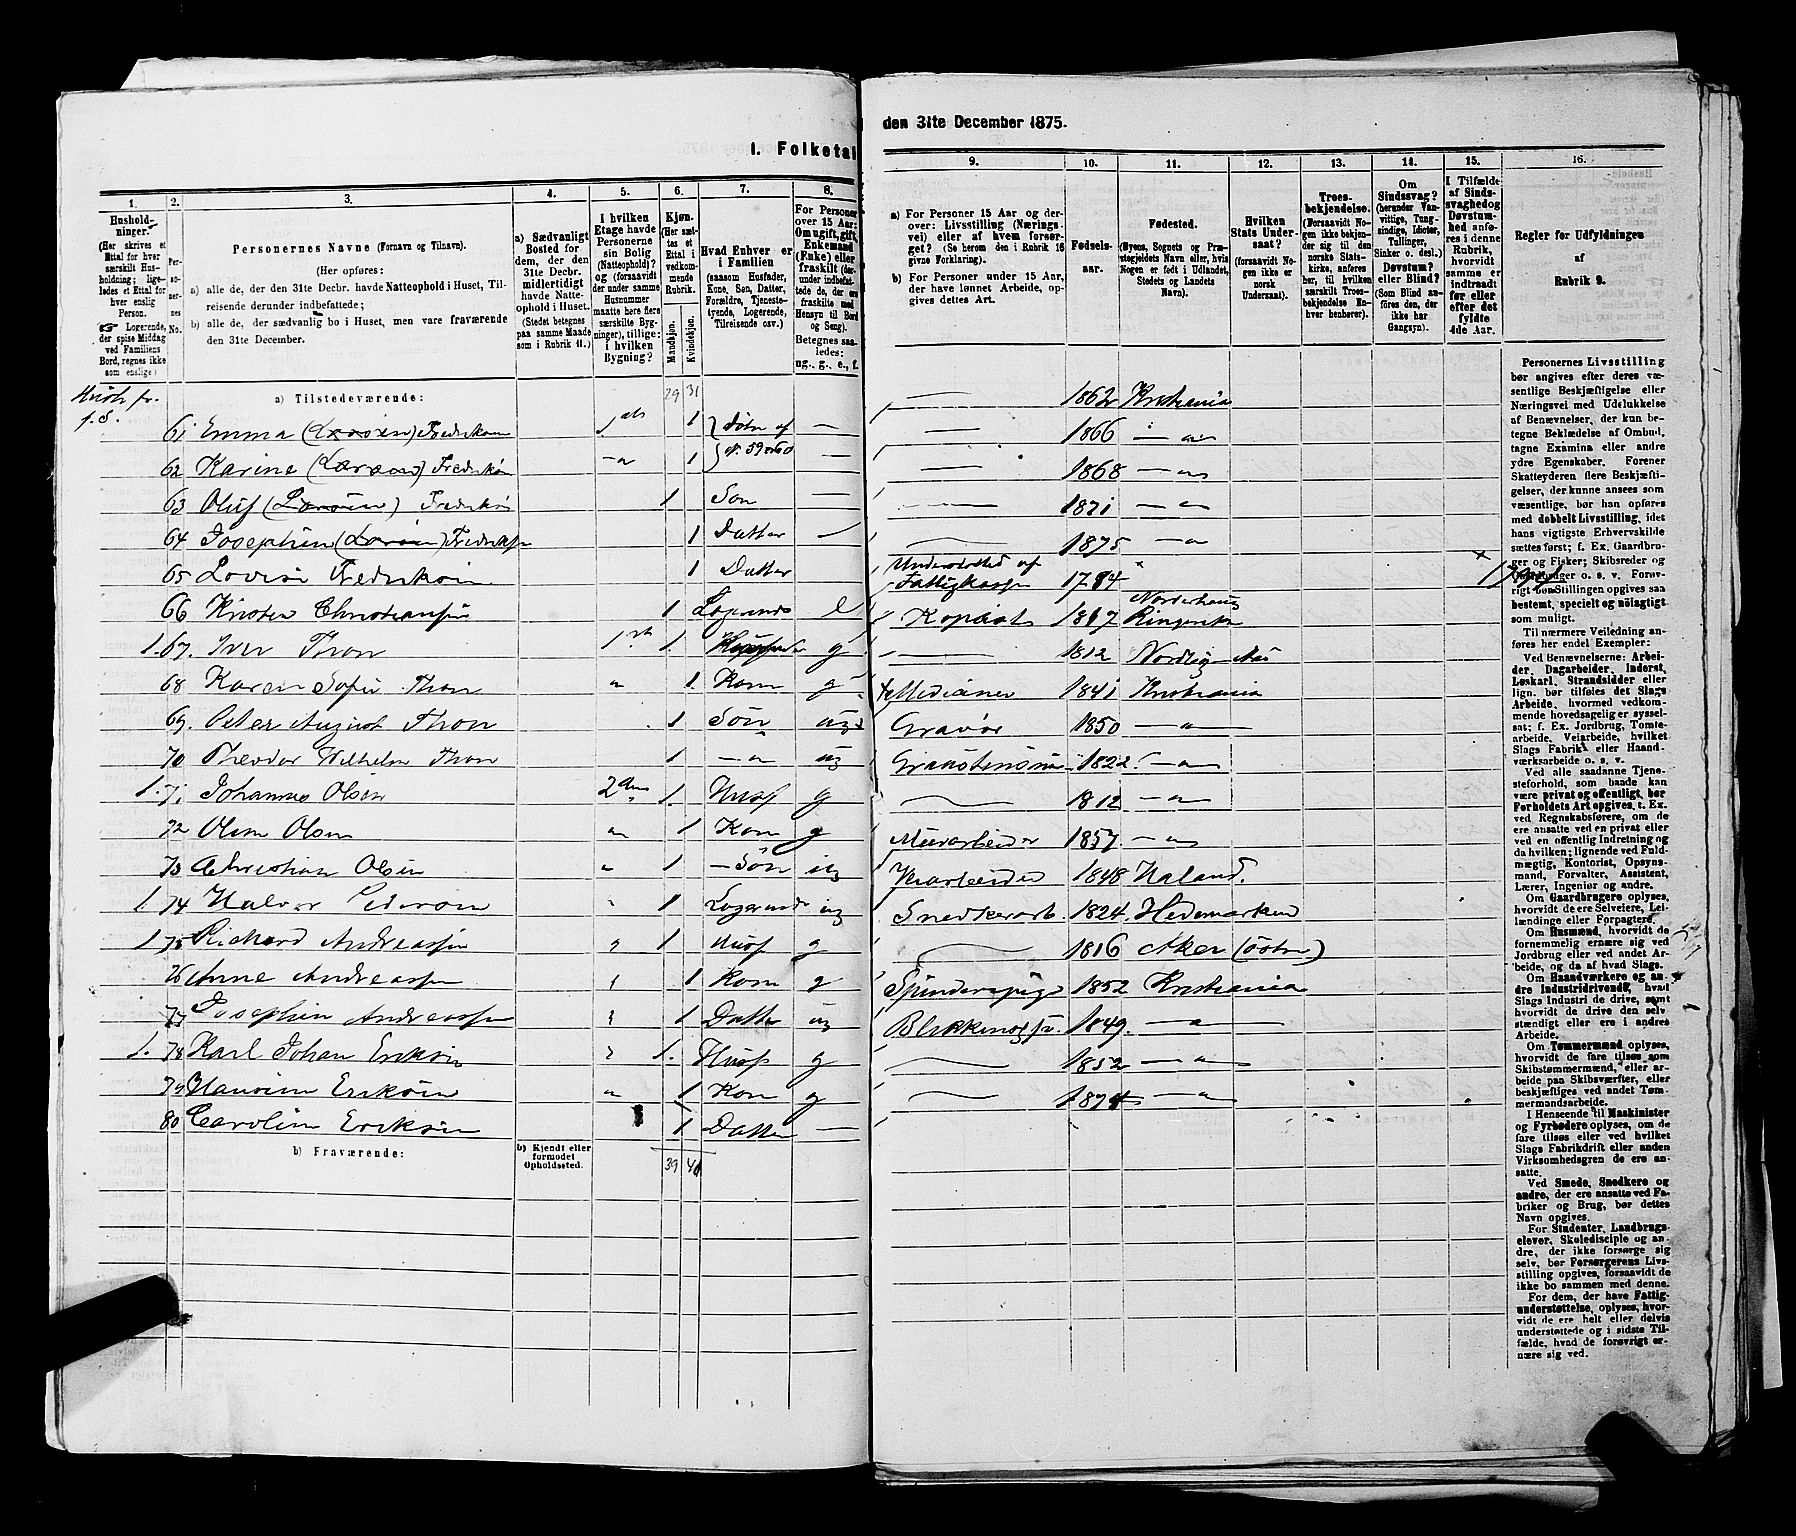 I. Folketal
den 31te December 1875.
1.
2.
3.
4.
5.
6.
7.
8.
9.
10.
11.
12.
13.
14.
15.
16.
Hushold-
ninger.
(Her skrives et
Ettal for hver
særskilt Hus-
holdning; lige-
ledes et Ettal for
hver enslig
Person.
☞ Logerende,
der spise Middag
ved Familiens
Bord, regnes ikke
som enslige.)
Per-
so-
ner-
nes
No.
Personernes Navne (Fornavn og Tilnavn).
(Her opføres:
a) alle de, der den 31te Decbr. havde Natteophold i Huset, Til-
reisende derunder indbefattede;
b) alle de, der sædvanlig bo i Huset, men vare fraværende
den 31te December.
a) Sædvanligt
Bosted for
dem, der den
31te Decbr.
midlertidigt
havde Natte-
ophold i Huset.
(Stedet betegnes
paa samme Maade
som i Rubrik 11.)
I hvilken
Etage havde
Personerne
sin Bolig
(Natteophold)?
og (forsaavidt
der under samme
Husnummer
maatte høre flere
særskilte Byg-
ninger), tillige:
i hvilken
Bygning?
Kjøn.
(Her sæt-
tes et
Ettal i
vedkom-
mende
Rubrik.
Mandkjøn.
Kvindekjøn.
Hvad Enhver er
i Familien
(saasom Husfader,
Kone, Søn, Datter,
Forældre, Tjeneste-
tyende, Logerende,
Tilreisende osv.)
For Personer
over 15 Aar:
Om ugift, gift,
Enkemand
(Enke) eller
fraskilt (der-
under indbefat-
tede de, der ere
fraskilte med
Hensyn til Bord
og Seng).
Betegnes saa-
ledes:
ug., g., e., f.
a) For Personer 15 Aar og der-
over: Livsstilling (Nærings-
vei) eller af hvem forsør-
get? (Se herom den i Rubrik 16
givne Forklaring).
b) For Personer under 15 Aar,
der have lønnet Arbeide, op-
gives dettes Art.
Fødsels-
aar.
Fødested.
(Byens, Sognets og Præ-
stegjeldets Navn eller, hvis
Nogen er født i Udlandet,
Stedets og Landets
Navn).
Hvilken
Stats Under-
saat?
(forsaavidt No-
gen ikke er
norsk
Undersaat).
Troes-
bekjendelse.
(Forsaavidt No-
gen ikke bekjen-
der sig til den
norske Stats-
kirke, anføres
her, til hvilken
særskilt Troes-
bekjendelse En-
hver henhører).
Om
Sindssvag?
(herunder Van-
vittige, Tung-
sindige, Idioter,
Tullinger,
Sinker o. desl.)
Døvstum?
eller Blind?
(Som Blind an-
føres den, der
ikke har
Gangsyn).
I Tilfælde
af Sinds-
svaghed og
Døvstum-
hed anfø-
res i denne
Rubrik,
hvorvidt
samme er
indtraadt
før eller
efter det
fyldte
4de Aar.
Regler for Udfyldningen
af
Rubrik 9.
a) Tilstedeværende:
29 31
61 Emma (Larsen) Fredriksen 1 1 Døtre af — — 1862 Kristiania
62 Karine (Larsen) Fredriksen 1 No. 59 & 60 — — 1866
63 Oluf (Larsen) Fredriksen 1 Søn — — 1868
64 Josephine (Larsen) Fredriksen 1 Datter — 1871
65 Lovise Fredriksen 1 Datter 1875
66 Kirsten Christiansen 1 Logerende e Understøttet af Fattigkassen
1. 67. Iver Thon 1 1. g Kopist Norderhaug Ringerike
68 Karen Sofie Thon 1 Kone g — 1812
69. Peter August Thon 1 Søn ug 1841 Kristiania
70 Theodor Wilhelm Thon 1 ug Gravør 1850
1. 71 Johannes Olsen 2 1. Husf g 1822
72 Oline Olsen 1 Kone g — 1812
73 Christian Olsen 1 Søn ug Murarbeider 1857
1. 74 Halvor 1 Logerende ug 1848
1 75 Rickard Andreassen 1 Husf g Snedkerarb 1824. Hedemarken
76 Anne Andreassen 1 Kone g — 1816 Aker (østre)
77 Josephine Andreassen 1 Datter ug Spinderipige 1852 Kristiania
1. 78 Karl Johan Eriksen 1. Husf g 1849.
79 Hansine Eriksen 1 Kone g — 1852
80 Caroline Eriksen 1 Datter — — 1874
b) Fraværende:
b) Kjendt eller
formodet
Opholdssted.
39 41
Personernes Livsstilling
bør angives efter deres væ-
sentlige Beskjæftigelse eller
Næringsvei med Udelukkelse
af Benævnelser, der kun be-
tegne Beklædelse af Ombud,
tagne Examina eller andre
ydre Egenskaber. Forener
Skatteyderen flere Beskjæfti-
gelser, der kunne ansees som
væsentlige, bør han opføres
med dobbelt Livsstilling, idet
hans vigtigste Erhvervskilde
sættes først; f. Ex. Gaardbru-
ger og Fisker; Skibsreder og
Gaardbruger o. s. v. Forøv-
rigt bør Stillingen opgives saa
bestemt, specielt og nøiagtigt
som muligt.
Til nærmere Veiledning an-
føres her endel Exempler:
Ved Benævnelserne: Arbei-
der, Dagarbeider, Inderst,
Løskarl, Strandsidder eller
lign. bør tilføies det Slags
Arbeide, hvormed vedkom-
mende hovedsagelig er syssel-
sat; f. Ex. Jordbrug, Tomte-
arbeide, Veiarbeide, hvilket
Slags Fabrik eller Haand-
værksarbeide o. s. v.
Ved alle saadanne Tjene-
steforhold, som baade kan
være privat og offentligt, bør
Forholdets Art opgives, t. Ex.
ved Regnskabsførere, om de
ere ansatte ved en privat eller
en offentlig Indretning og
da hvilken; lignende ved Fuld-
mægtig, Kontorist, Opsyns-
mand, Forvalter, Assistent,
Lærer, Ingeniør og andre.
Om Gaardbrugere oplyses,
hvorvidt de ere Selveiere, Lei-
lændinge eller Forpagtere.
Om Husmænd, hvorvidt de
fornemmelig ernære sig ved
Jordbrug eller ved andet Ar-
beide, og da af hvad Slags.
Om Haandværkere og an-
dre Industridrivende, hvad
Slags Industri de drive, samt
hvorvidt de drive den selv-
stændigt eller ere i andres
Arbeide.
Om Tømmermænd oplyses,
hvorvidt de fare tilsøs som
Skibstømmermænd, eller ar-
beide paa Skibsværfter, eller
beskjæftiges ved andet Tøm-
mermandsarbeide.
I Henseende til Maskinister
og Fyrbødere oplyses, om de
fare tilsøs eller ved hvilket
Slags Fabrikdrift eller anden
Virksomhedsgren de ere an-
satte.
Ved Smede, Snedkere og
andre, der ere ansatte ved Fa-
briker og Brug, bør dettes
Navn opgives.
For Studenter, Landbrugs-
elever, Skoledisciple og an-
dre, der ikke forsørge sig
selv, bør Forsørgerens Livs-
stilling opgives, forsaavidt de
ikke bo sammen med denne.
For dem, der have Fattig-
understøttelse, oplyses, hvor-
vidt de ere helt eller delvis
understøttede og i sidste Til-
fælde, hvad de forøvrigt er-
nære sig ved.